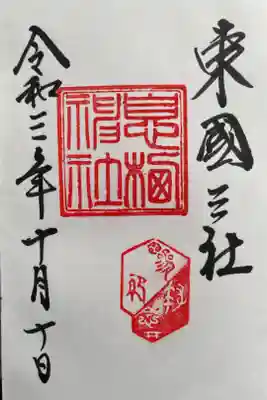 東國三社
息栖神社
令和三年十月十日